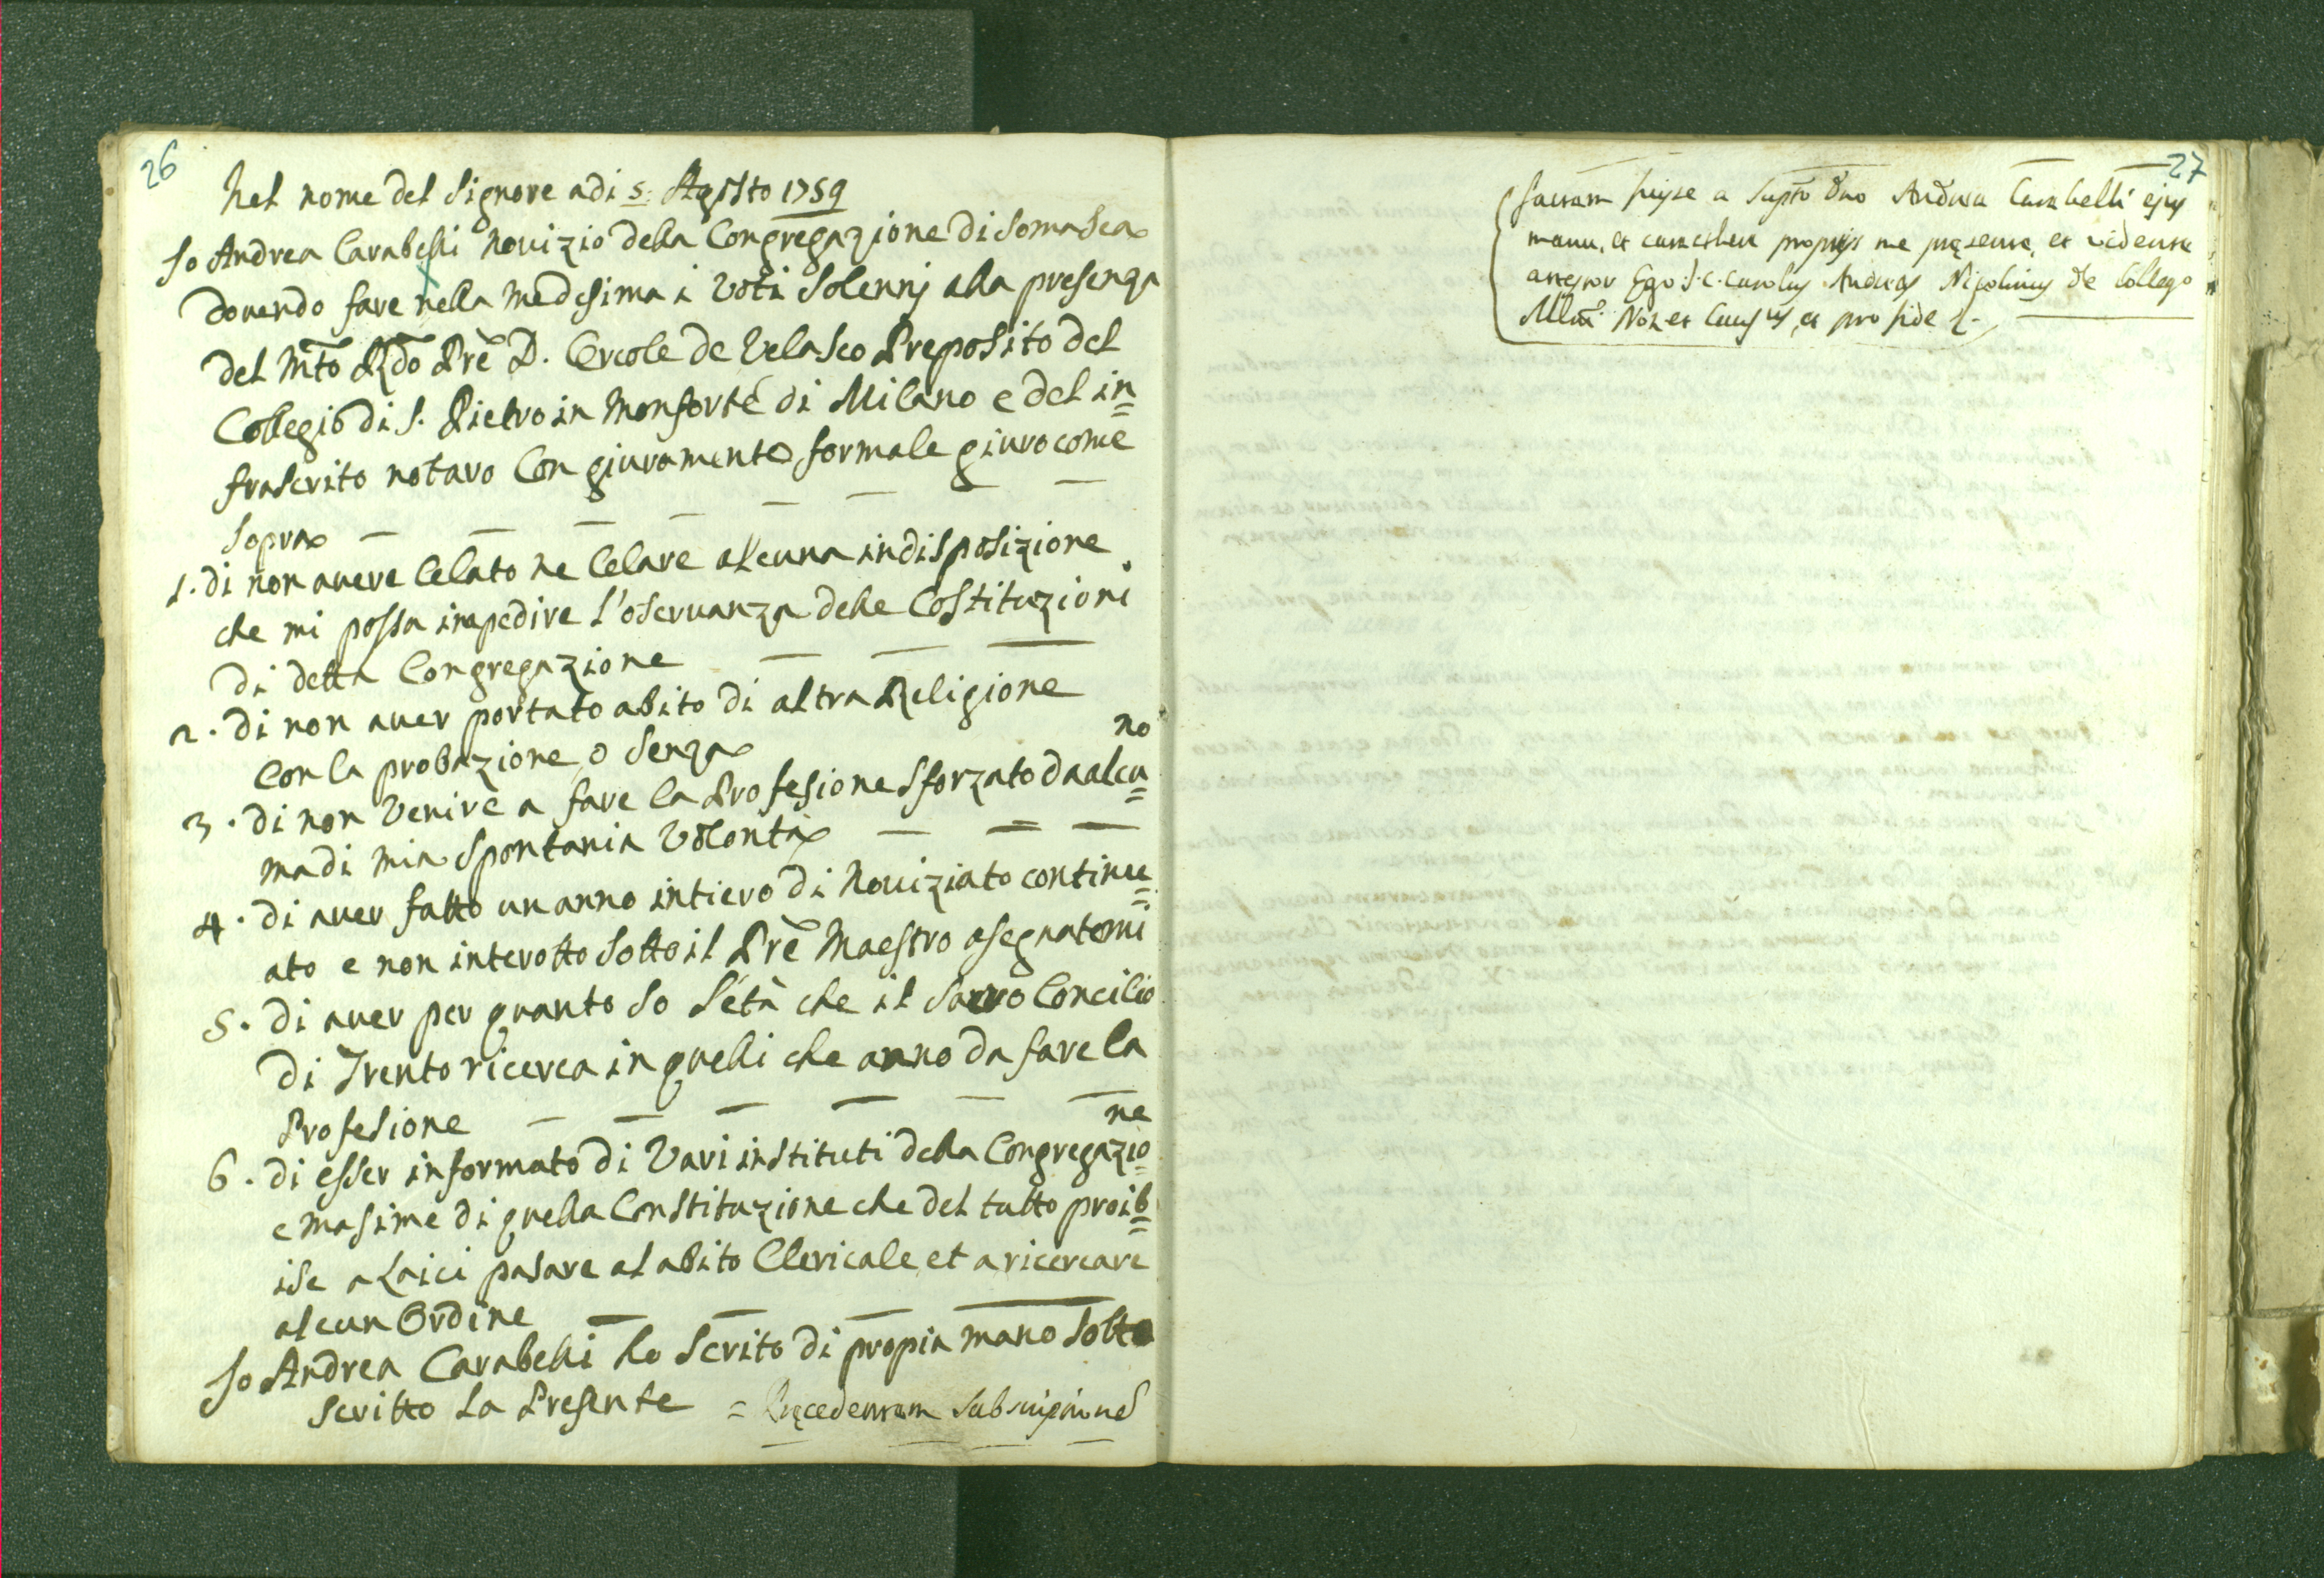 26
Nel nome del Signore adi 5. Agosto 1759
Io Andrea Carabelli Novizio della Congregazione di Somasca
dovendo fare nella medesima i Voti Solennj alla presenza
del Mto Rdo Pre D. Ercole de Velasco Preposito del
Collegio di S. Pietro in Monforte di Milano e del in=
frascrito notaro Con giuramento formale giuro come
Sopra
1. di non avere Celato ne Celare alcuna indisposizione
che mi possa impedire l'oservanza delle Costituzioni
di detta Congregazione
2. di non aver portato abito di altra Religione
con la probazione, o Senza
3. di non Venire a fare la Profesione Sforzato da alcu=
no
ma di mia Spontania Volontà
4. di aver fatto un anno intiero di Noviziato continu=
ato e non interotto Sotto il Pre Maestro asegnatomi
5. di aver per quanto So l'età che il Sacro Concilio
di Trento ricerca in quelli che anno da fare la
Profesione
6. di esser informato di Vari instituti della Congregazio=
ne
e masime di quella Constituzione che del tutto proib=
ise a Laici pasare al abito Clericale et a ricercare
alcun Ordine
Io Andrea Carabelli ho Scrito di propia mano Sotto
Scritto La Presente = Præcedentem Subscriptione
27
factam fuisse a Supto Dno Andrea Carabelli ejus
manu, et caractere proprijs me præsente, et vidente
attestor Ego J. C. Carolus Andreas Nicolinus de Collegio
Mlni Not. et Caus.us, et pro fide